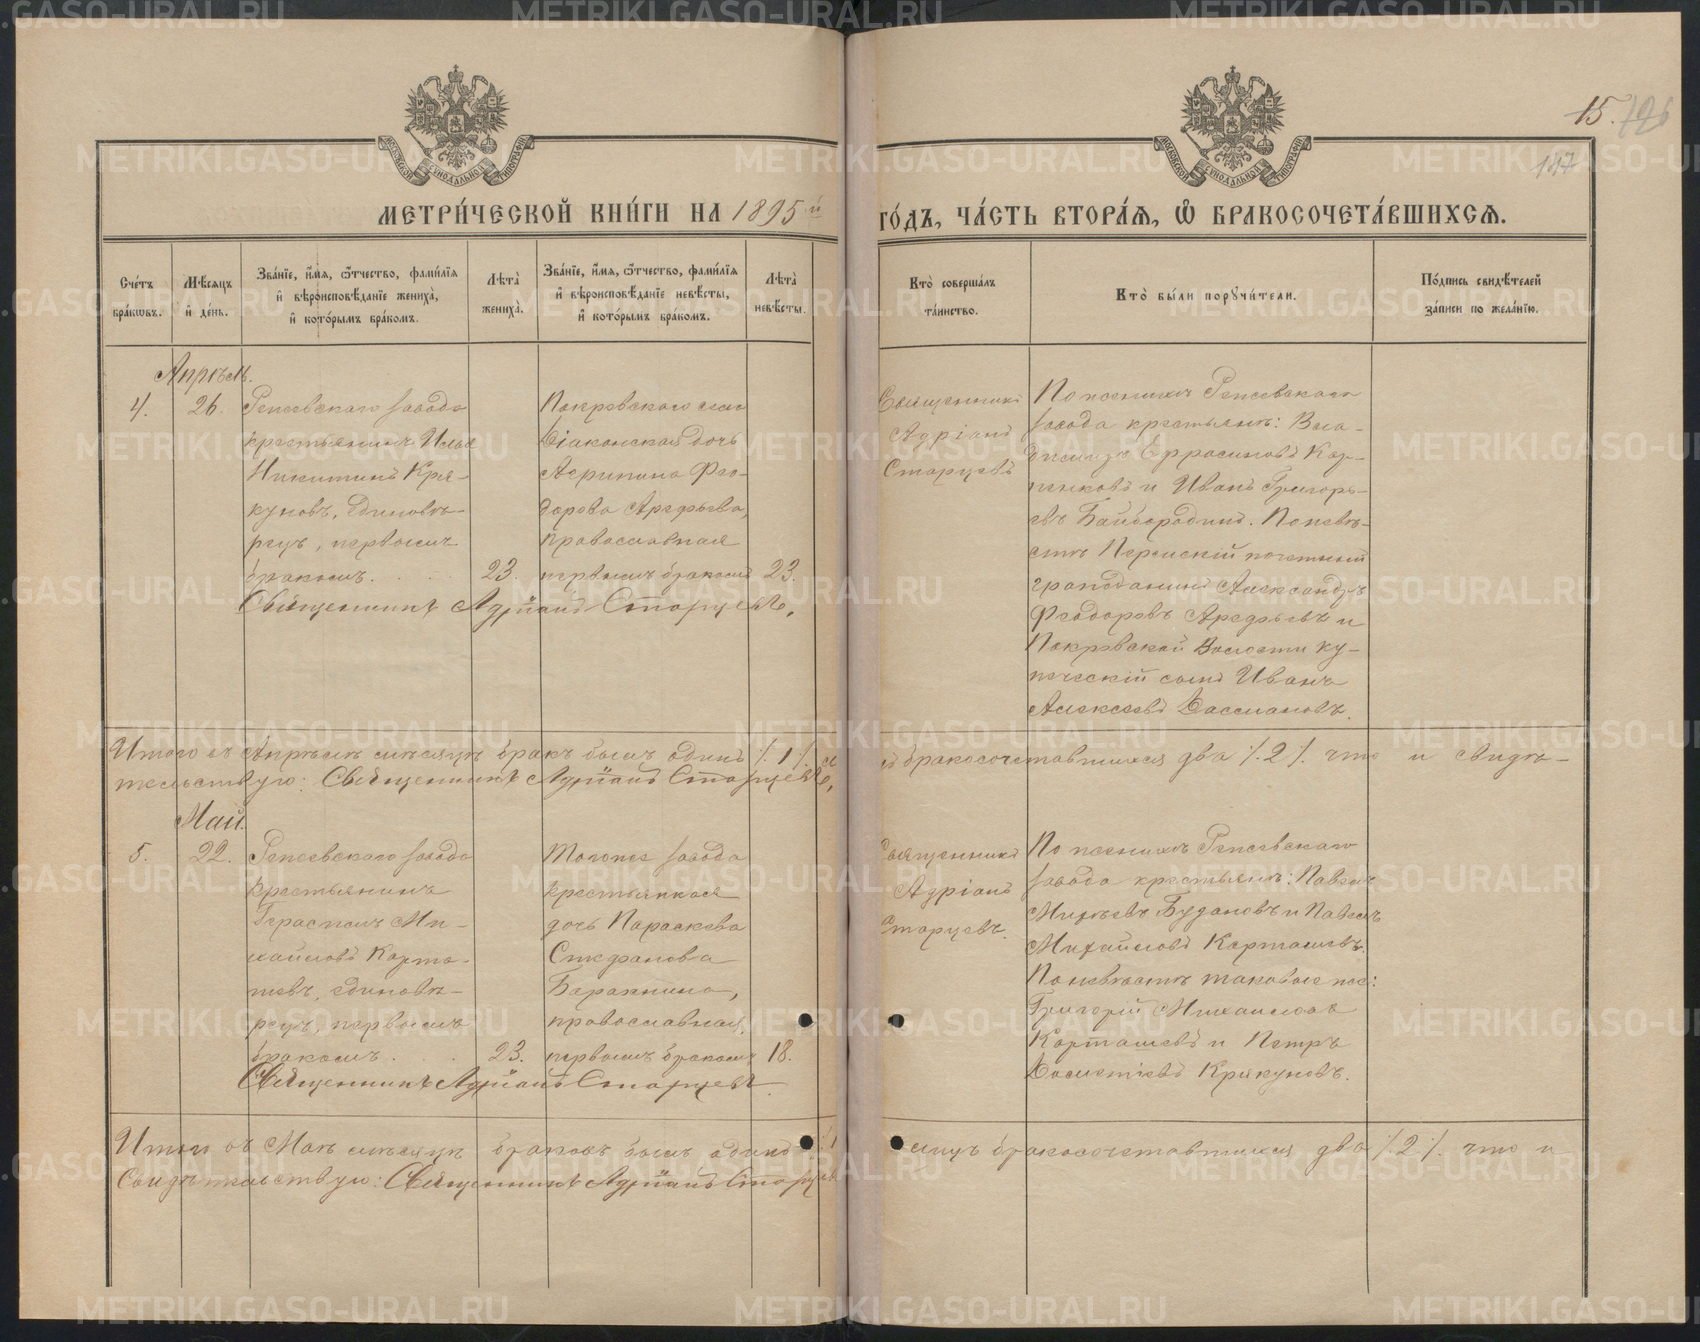 METRIKI.GASO-URAL.RU
15.
126
147
МОСКОВСКОЙ СѴНОДАЛЬНОЙ ТИПОГРАФІИ
МОСКОВСКОЙ СѴНОДАЛЬНОЙ ТИПОГРАФІИ
МЕТРИ́ЧЕСКОЙ КНИ́ГИ НА 1895 й
ГО́ДЪ, ЧА́СТЬ ВТОРА́Ѧ, Ѽ БРАКОСОЧЕТА́ВШИХСѦ.
Сче́тъ
бра́кѡвъ.
Мѣ́сѧцъ
и҆ де́нь.
Зва́нїе, и҆́мѧ, ѻ҆́тчество, фамі́лїѧ
и҆ вѣроисповѣ́данїе жениха̀,
и҆ кото́рымъ бра́комъ.
Лѣта̀
жениха̀.
Зва́нїе, и҆́мѧ, ѻ҆́тчество, фамі́лїѧ
и҆ вѣроисповѣ́данїе невѣ́сты,
и҆ кото́рымъ бра́комъ.
Лѣта̀
невѣ́сты.
Кто̀ соверша́лъ
та́инство.
Кто̀ бы́ли порꙋчи́тели.
По́дпись свидѣ́телей
за́писи по жела́нїю.
Апрѣль.
4.
26.
Режевскаго завода
крестьянинъ Илья
Никитинъ Кря-
куновъ, единовѣ-
рецъ, первымъ
бракомъ. . . .
23.
Покровскаго села
діаконская дочь
Агрипина Фео-
дорова Арефьева,
православная
первымъ бракомъ
23.
Священникъ Адріанъ Старцевъ.
Священникъ
Адріанъ
Старцевъ
По женихѣ Режевскаго
завода крестьяне: Вла-
димиръ Ефросиновъ Кар-
пенковъ и Иванъ Григорь-
евъ Байбородинъ. По невѣ-
стѣ Пермскій почетный
гражданинъ Александръ
Феодоровъ Арефьевъ и
Покровской волости ку-
печескій сынъ Иванъ
Алексеевъ Кассиановъ.
Итого въ Апрѣлѣ мѣсяцѣ бракъ былъ одинъ ./. 1 ./. а
бракосочетавшихся два ./. 2 ./. что и свидѣ-
тельствую: Священникъ Адріанъ Старцевъ,
Май.
5.
22.
Режевскаго завода
крестьянинъ
Герасимъ Ми-
хайловъ Карта-
шевъ, единовѣ-
рецъ, первымъ
бракомъ. . . .
23.
Тогоже завода
крестьянская
дочь Параскева
Стефанова
Баражнина,
православная,
первымъ бракомъ
18.
Священникъ Адріанъ Старцевъ.
Священникъ
Адріанъ
Старцевъ.
По женихѣ Режевскаго
завода крестьяне: Павелъ
Михѣевъ Будановъ и Павелъ
Михайловъ Карташевъ.
По невѣстѣ таковые же:
Григорій Михайловъ
Карташевъ и Петръ
Васильевъ Крякуновъ.
Итого въ Маѣ мѣсяцѣ браковъ былъ одинъ ./. 1
лицъ бракосочетавшихся два ./. 2 ./. что и
Свидѣтельствую: Священникъ Адріанъ Старцевъ